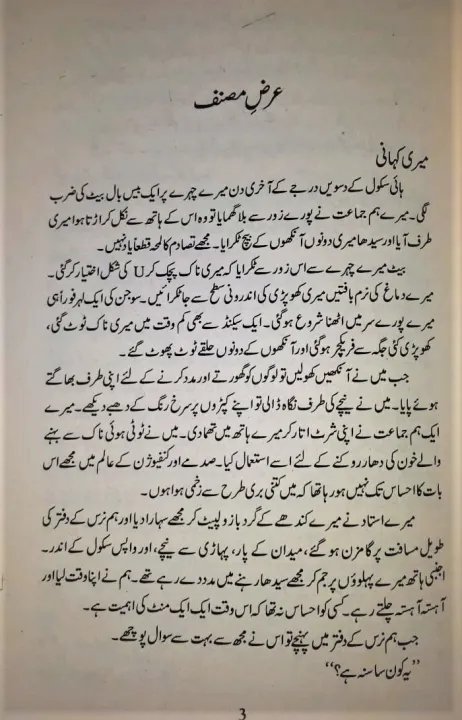 عرضِ مصنف
میری کہانی
ہائی سکول کے دسویں درجے کے آخری دن میرے چہرے پر ایک بیس بال بیٹ کی ضرب
لگی۔ میرے ہم جماعت نے پورے زور سے بلا گھمایا تو وہ اس کے ہاتھ سے نکل کر اڑتا ہوا میری
طرف آیا اور سیدھا میری دونوں آنکھوں کے بیچ ٹکرایا۔ مجھے تصادم کا لمحہ قطعاً یاد نہیں۔
بیٹ میرے چہرے سے اس زور سے ٹکرایا کہ میری ناک پچک کر U کی شکل اختیار کر گئی۔
میرے دماغ کی نرم بافتیں میری کھوپڑی کی اندرونی سطح سے جا ٹکرائیں۔ سوجن کی ایک لہر فوراً ہی
میرے پورے سر میں اٹھنا شروع ہو گئی۔ ایک سیکنڈ سے بھی کم وقت میں میری ناک ٹوٹ گئی،
کھوپڑی کئی جگہ سے فریکچر ہو گئی اور آنکھوں کے دونوں حلقے ٹوٹ پھوٹ گئے۔
جب میں نے آنکھیں کھولیں تو لوگوں کو گھورتے اور مدد کرنے کے لئے اپنی طرف بھاگتے
ہوئے پایا۔ میں نے نیچے کی طرف نگاہ ڈالی تو اپنے کپڑوں پر سرخ رنگ کے دھبے دیکھے۔ میرے
ایک ہم جماعت نے اپنی شرٹ اتار کر میرے ہاتھ میں تھما دی۔ میں نے ٹوٹی ہوئی ناک سے بہنے
والے خون کی دھار روکنے کے لئے اسے استعمال کیا۔ صدمے اور کنفیوژن کے عالم میں مجھے اس
بات کا احساس تک نہیں ہو رہا تھا کہ میں کتنی بری طرح سے زخمی ہوا ہوں۔
میرے استاد نے میرے کندھے کے گرد بازو لپیٹ کر مجھے سہارا دیا اور ہم نرس کے دفتر کی
طویل مسافت پر گامزن ہو گئے، میدان کے پار، پہاڑی سے نیچے، اور واپس سکول کے اندر۔
اجنبی ہاتھ میرے پہلوؤں پر جم کر مجھے سیدھا رہنے میں مدد دے رہے تھے۔ ہم نے اپنا وقت لیا اور
آہستہ آہستہ چلتے رہے۔ کسی کو احساس نہ تھا کہ اس وقت ایک ایک منٹ کی اہمیت ہے۔
جب ہم نرس کے دفتر میں پہنچے تو اس نے مجھ سے بہت سے سوال پوچھے۔
"یہ کون سا سنہ ہے؟"
3